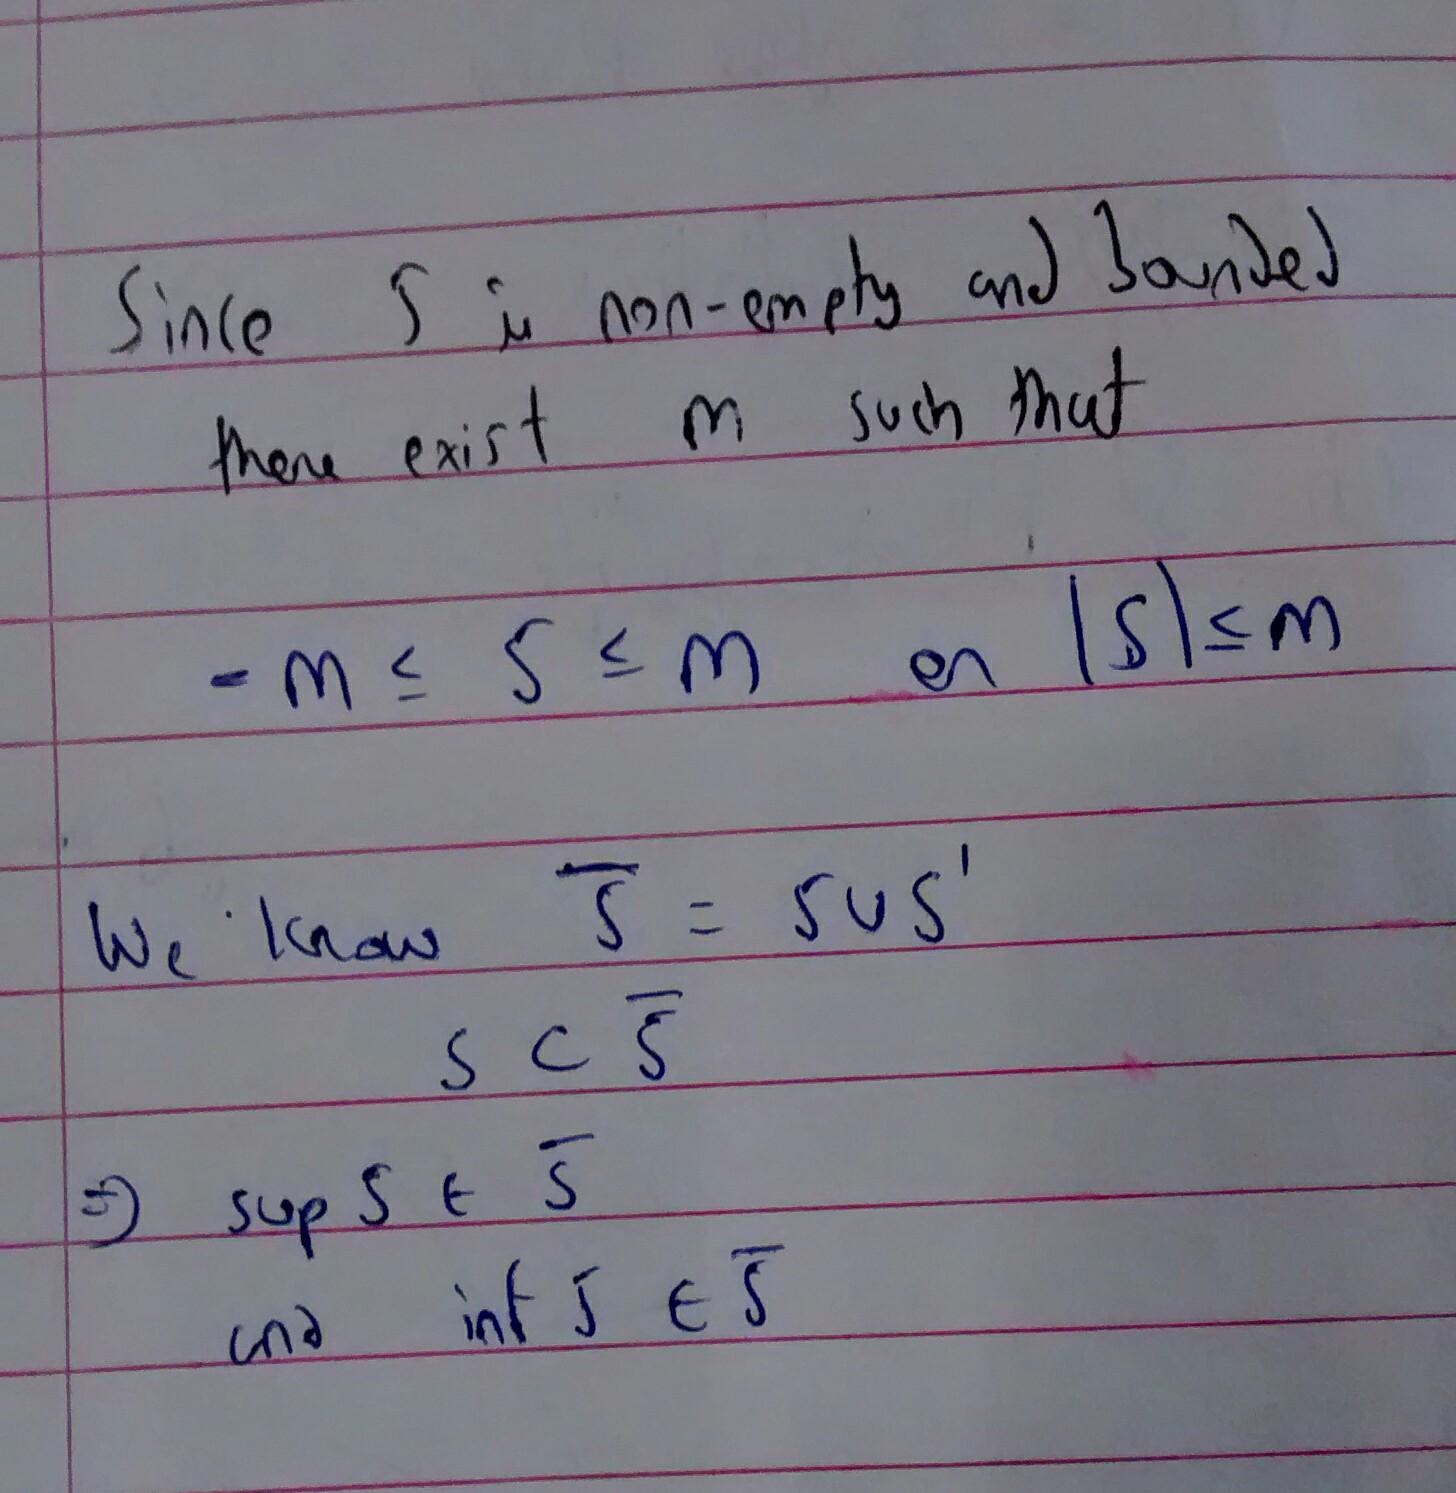 Since S is non-empty and bounded
there exist m such that
-m ≤ S ≤ m or |S| ≤ m
We know S̅ = S∪S'
S ⊂ S̅
⇒ sup S ∈ S̅
and inf S ∈ S̅